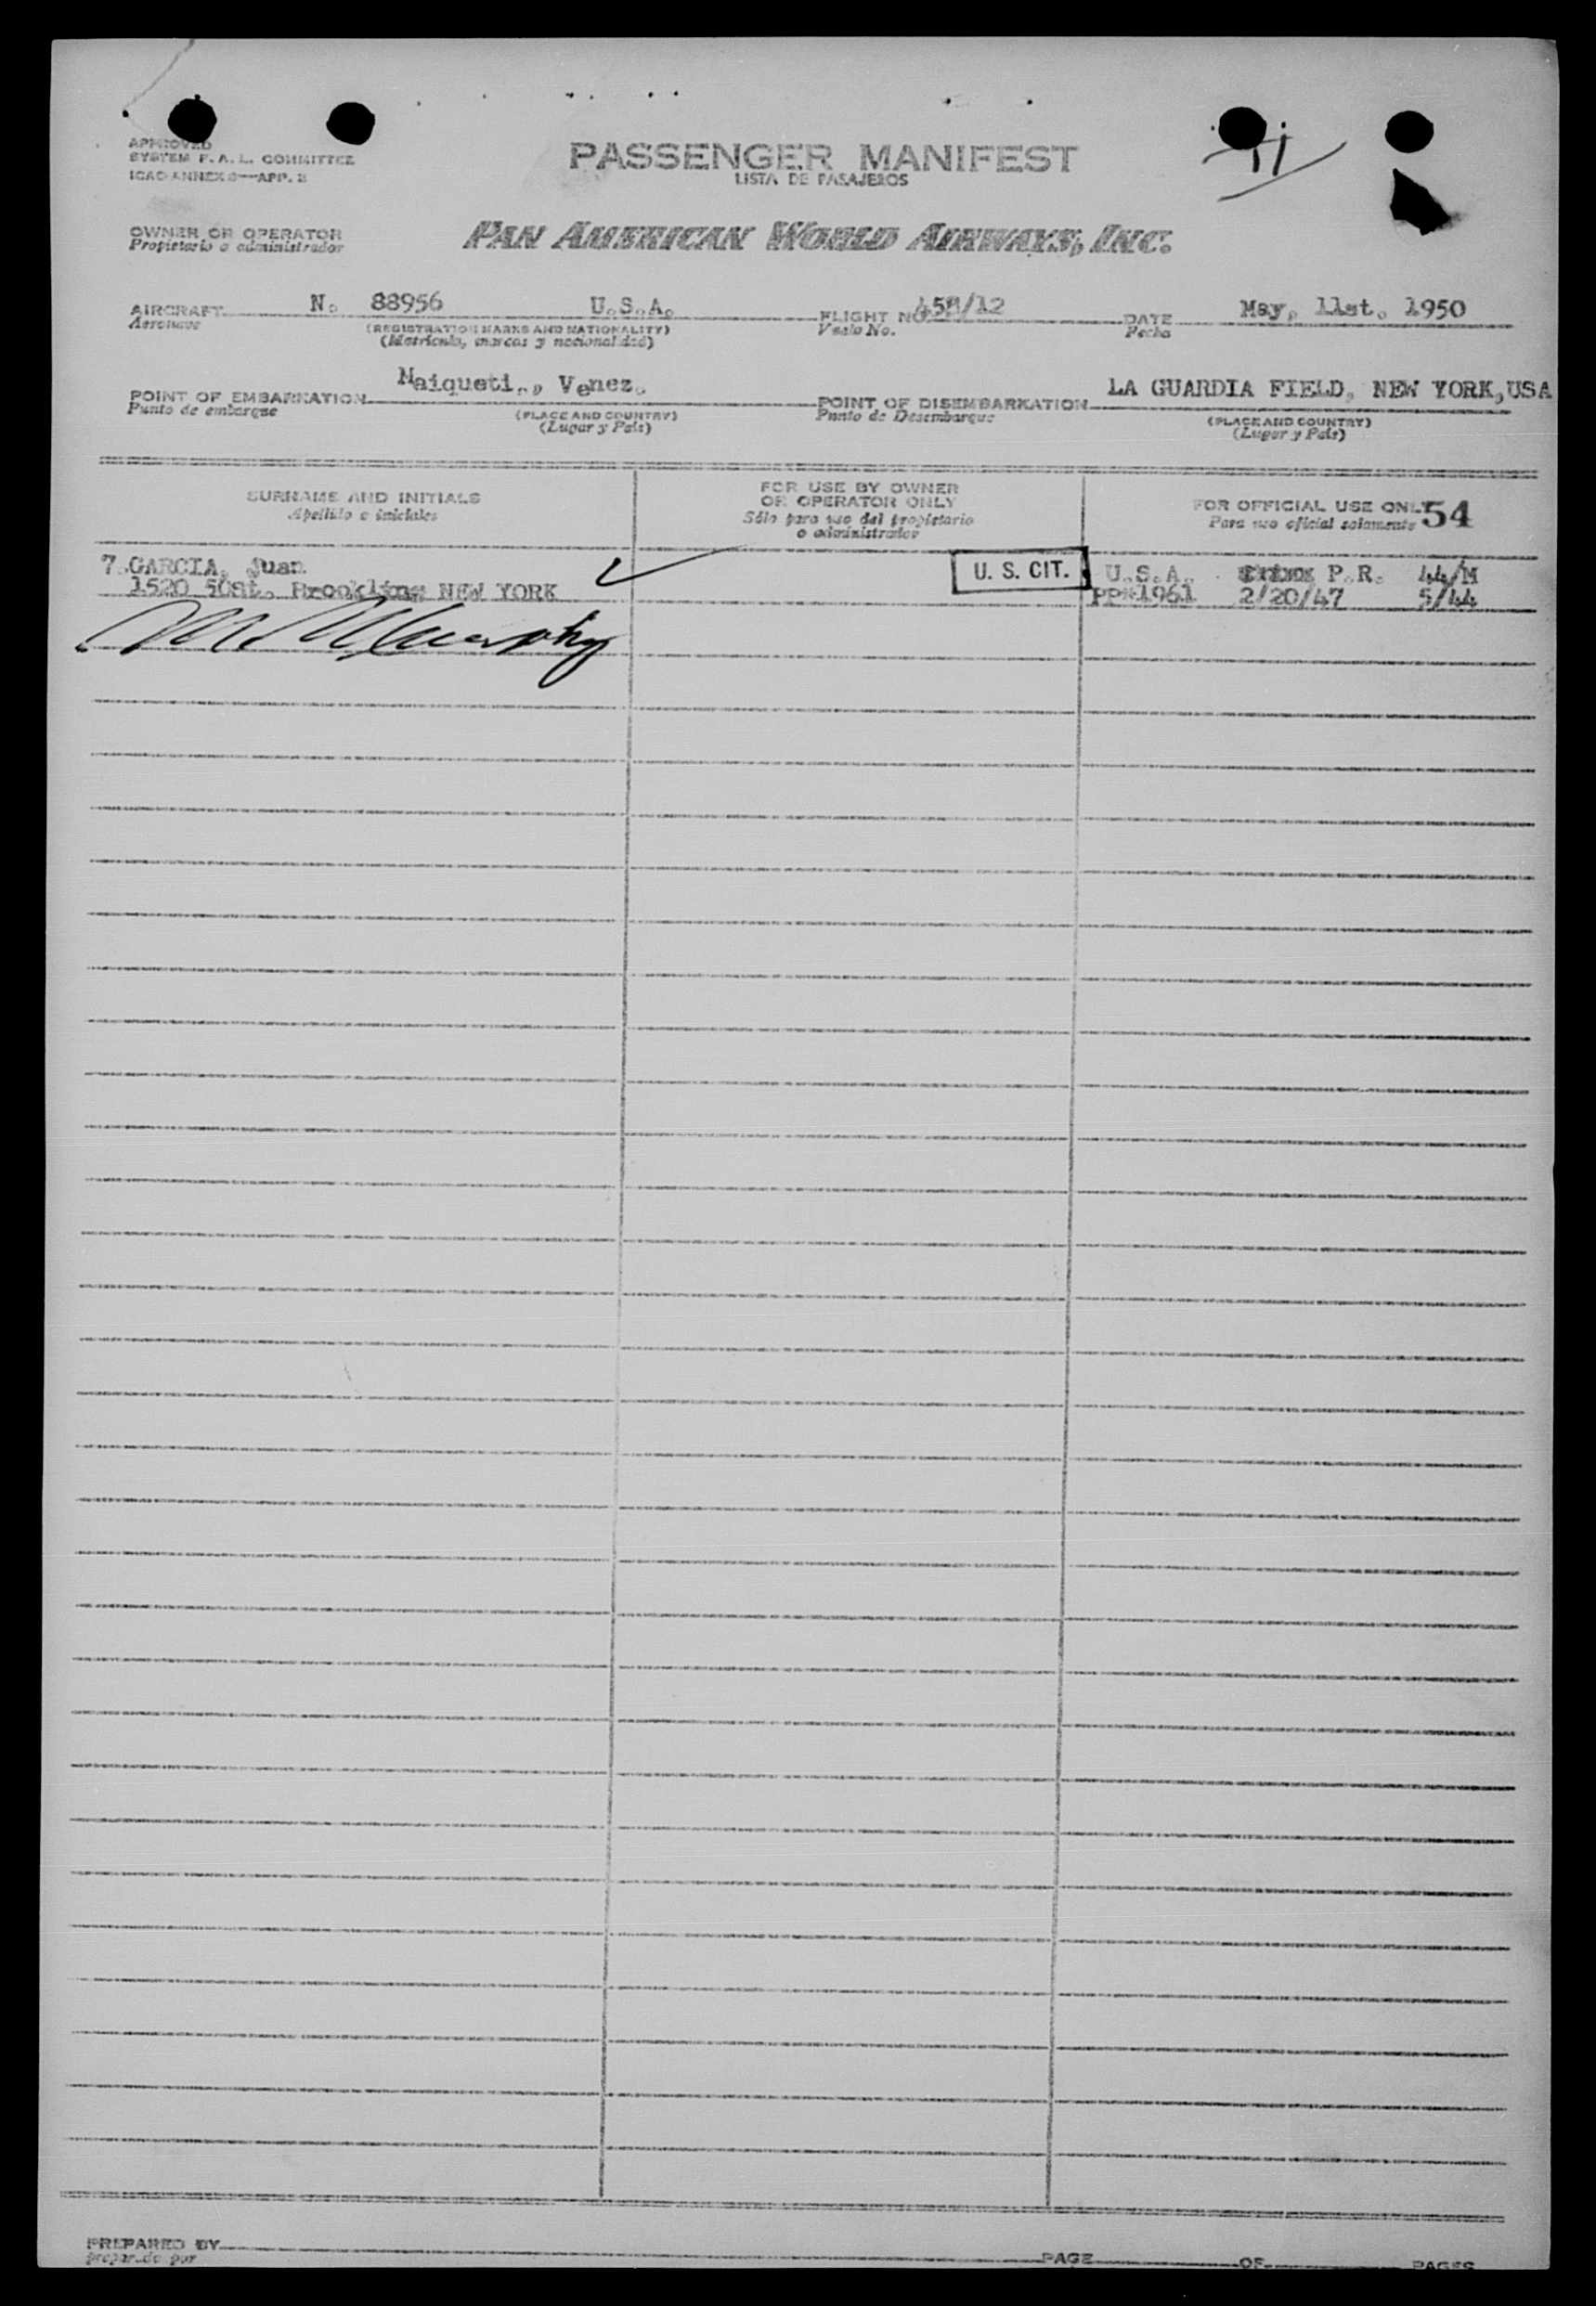 APPROVED
SYSTEM F. A. L. COMMITTEE
ICAO ANNEX 9—APP. 3
PASSENGER MANIFEST
LISTA DE PASAJEROS
11
OWNER OR OPERATOR
Propietario o administrador
PAN AMERICAN WORLD AIRWAYS, INC.
AIRCRAFT N. 88956 U.S.A. FLIGHT NO. /12 DATE May, 11st. 1950
Aeronave (REGISTRATION MARKS AND NATIONALITY) Vuelo No. Fecha
(Matricula, marcas y nacionalidad)
POINT OF EMBARKATION Maiqueti., Venez. POINT OF DISEMBARKATION LA GUARDIA FIELD, NEW YORK,USA
Punto de embarque (PLACE AND COUNTRY) Punto de Desembarque (PLACE AND COUNTRY)
(Lugar y País) (Lugar y País)
SURNAME AND INITIALS
Apellido e iniciales
FOR USE BY OWNER
OR OPERATOR ONLY
Sólo para uso del propietario
o administrador
FOR OFFICIAL USE ONLY 54
Para uso oficial solamente
7.GARCIA, Juan U. S. CIT. U.S.A. P.R. 44/M
1520 50st. NEW YORK PP#1961 2/20/47 5/44
Murphy
PREPARED BY PAGE OF PAGES
preparado por